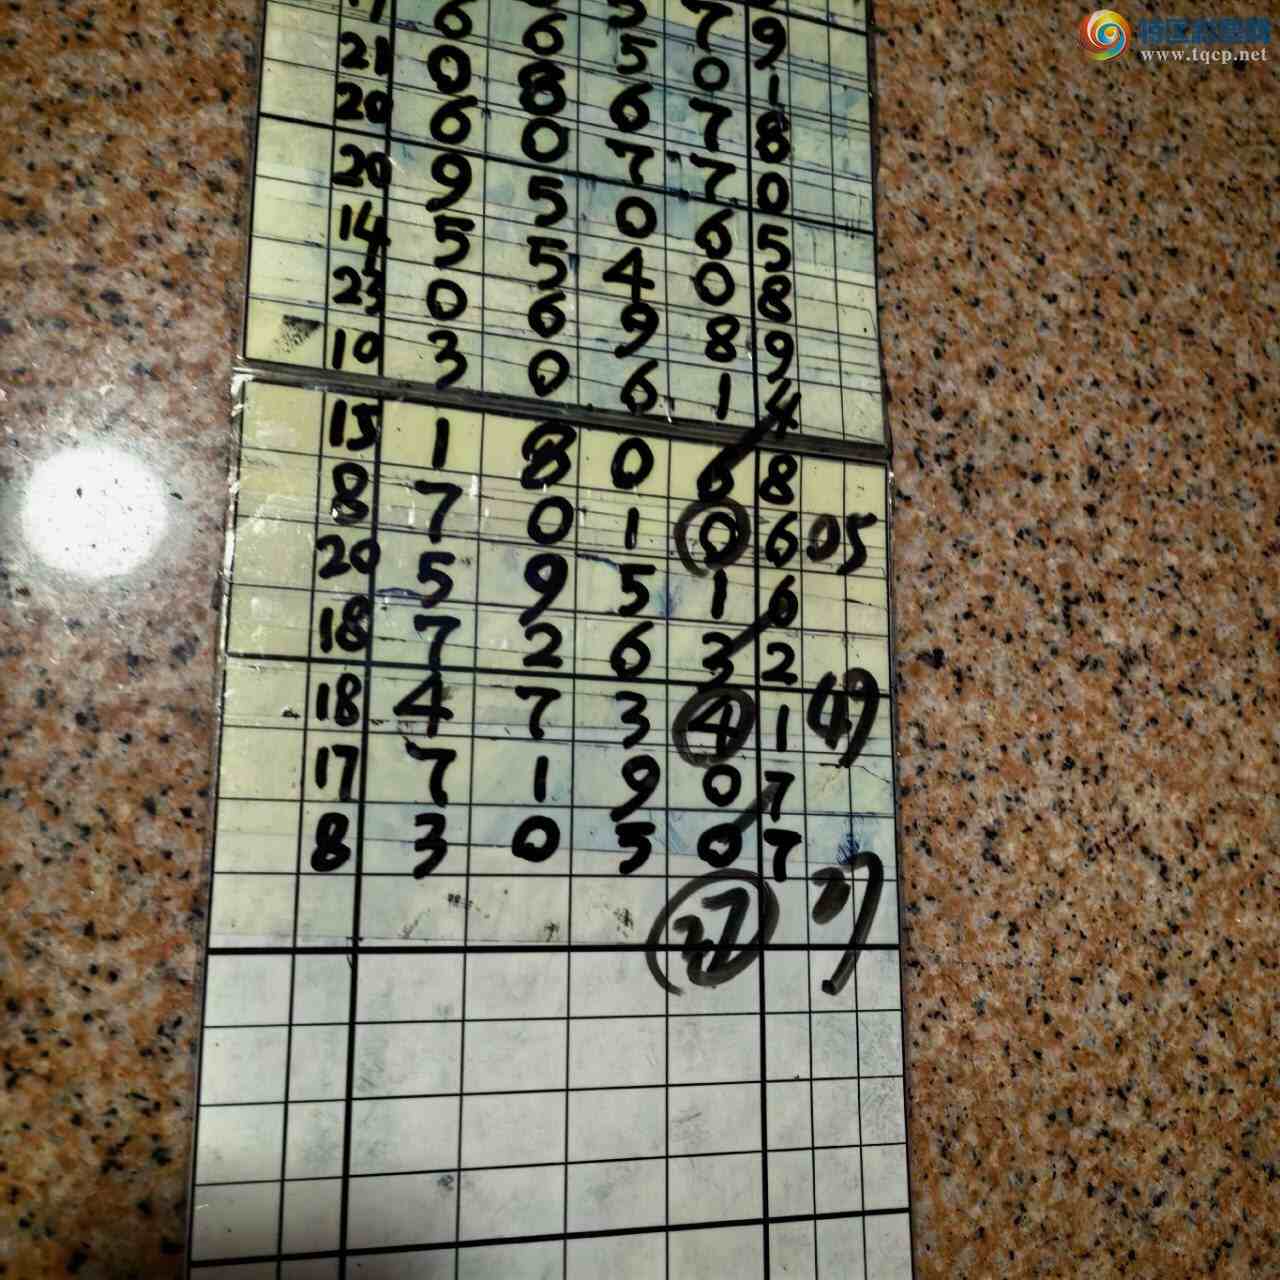 特区彩票网
www.tqcp.net
7 9
17 6 6 5 0 1
21 0 8 6 7 8
20 6 0 7 7 0
20 9 5 0 6 5
14 5 5 4 0 8
23 0 6 9 8 9
10 3 0 6 1 4
15 1 8 0 6 8
8 7 0 1 0 6 05
20 5 9 5 1 6
18 7 2 6 3 2
18 4 7 3 4 1 49
17 7 1 9 0 7
8 3 0 5 0 7
27 27